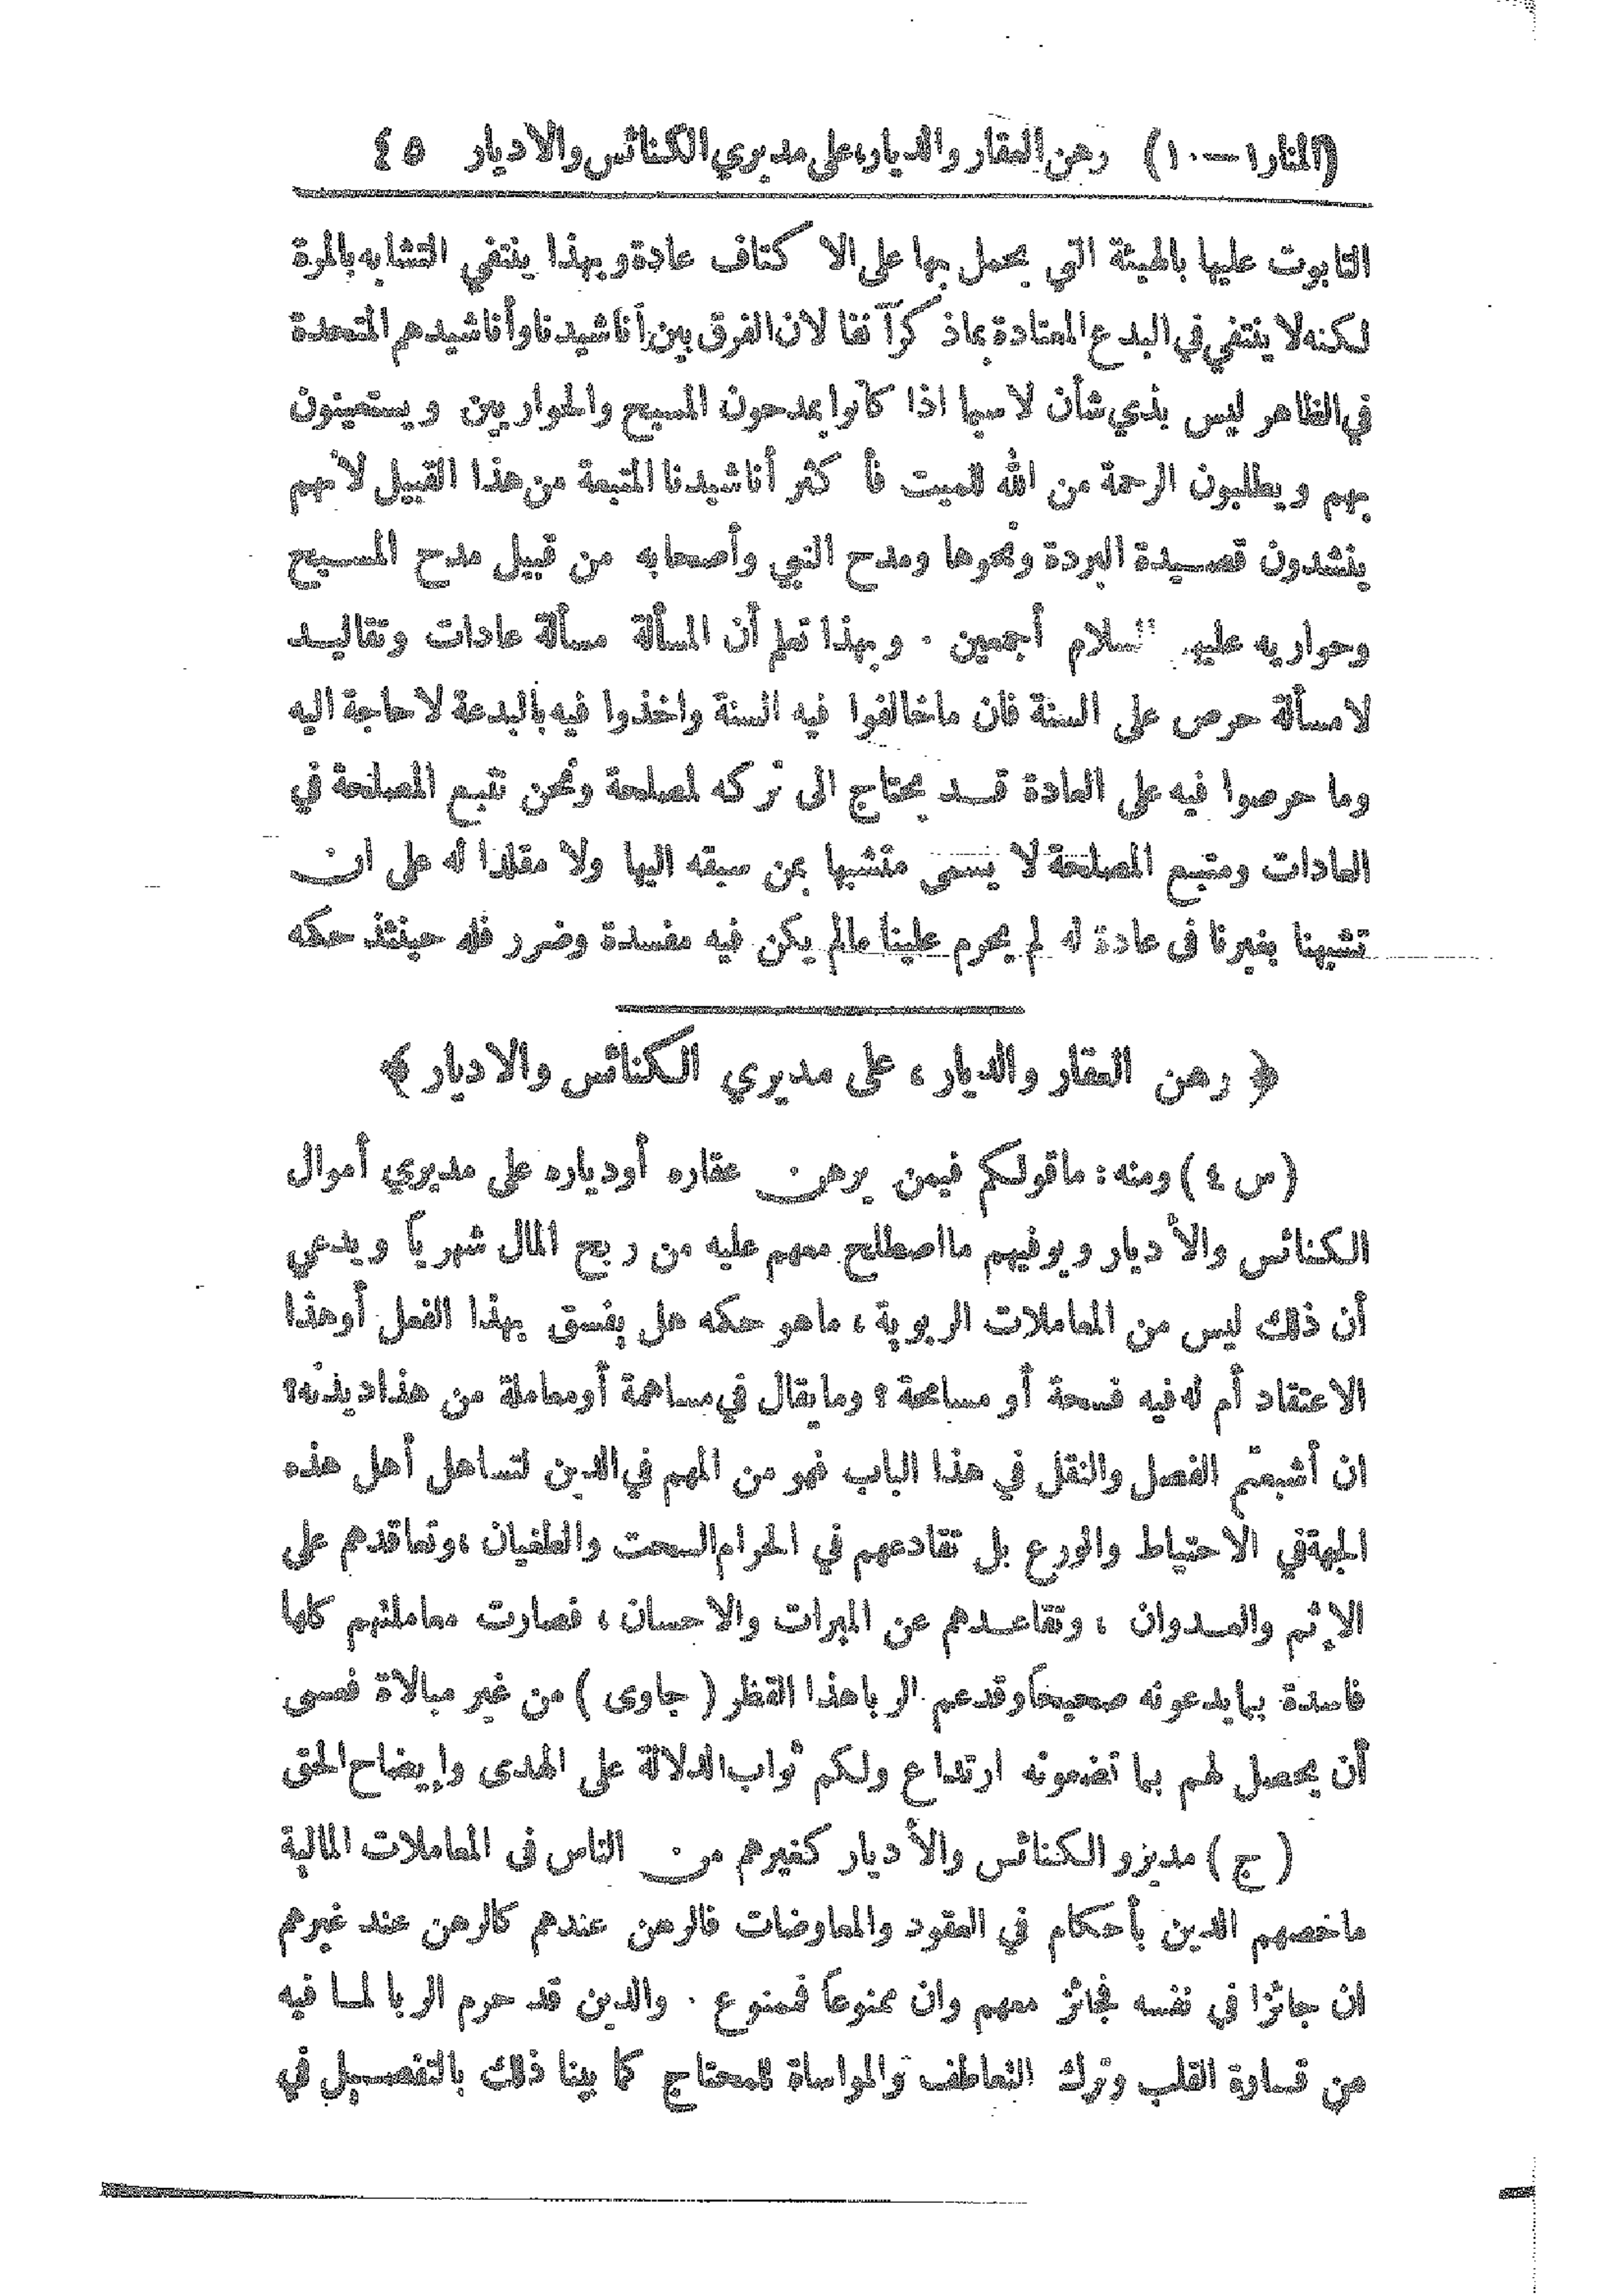 (المنار١—١٠) رهن العقار والديار، على مديري الكنائس والاديار ٤٥
التابوت عليها بالهيئة التي يحمل بها على الاكتاف عادة وبهذا ينتفي التشابه بالمرة
لكنه لا ينتفي في البدع المعتادة بماذكر آنفا لان الفرق بين أناشيدنا وأناشيدهم المتحدة
في الظاهر ليس بذي شأن لاسيما اذا كانوا يمدحون المسيح والحواريين ويستعينون
بهم ويطلبون الرحمة من الله للميت فأكثر أناشيدنا المتبعة من هذا القبيل لأنهم
ينشدون قصيدة البردة ونحوها ومدح النبي وأصحابه من قبيل مدح المسيح
وحواريه عليهم السلام أجمعين . وبهذا تعلم أن المسألة مسألة عادات وتقاليد
لا مسألة حرص على السنة فان ماخالفوا فيه السنة واخذوا فيه بالبدعة لا حاجة اليه
وما حرصوا فيه على العادة قد يحتاج الى تركه لمصلحة ونحن نتبع المصلحة في
العادات ومتبع المصلحة لا يسمى متشبها بمن سبقه اليها ولا مقلدا له على ان
تشبهنا بغيرنا فى عادة له لم يحرم علينا مالم يكن فيه مفسدة وضرر فله حينئذ حكمه
﴿ رهن العقار والديار، على مديري الكنائس والاديار ﴾
(س ٤) ومنه: ماقولكم فيمن يرهن عقاره أودياره على مديري أموال
الكنائس والأديار ويوفيهم ما اصطلح معهم عليه من ربح المال شهرياً ويدعي
أن ذلك ليس من المعاملات الربوية، ماهو حكمه هل يفسق بهذا الفعل أوهذا
الاعتقاد أم له فيه فسحة أو مسامحة؟ وما يقال في مساهمة أومعاملة من هذا ديدنه؟
ان أشبعتم الفصل والنقل في هذا الباب فهو من المهم في الدين لتساهل أهل هذه
الجهةفي الاحتياط والورع بل تقادعهم في الحرام السحت والطغيان، وتعاقدهم على
الإثم والعدوان ، وتقاعدهم عن المبرات والاحسان، فصارت معاملتهم كلها
فاسدة بما يدعونه صحيحاً وقدعم الربا هذا القطر (جاوى) من غير مبالاة فعسى
أن يحصل لهم بما تضعونه ارتداع ولكم ثواب الدلالة على الهدى وإيضاح الحق
(ج) مديرو الكنائس والأديار كغيرهم من الناس فى المعاملات المالية
ماخصهم الدين بأحكام في العقود والمعاوضات فالرهن عندهم كالرهن عند غيرهم
ان جائزا في نفسه فجائز معهم وان ممنوعاً فممنوع . والدين قد حرم الربا لما فيه
من قساوة القلب وترك التعاطف والمواساة للمحتاج كما بينا ذلك بالتفصيل في